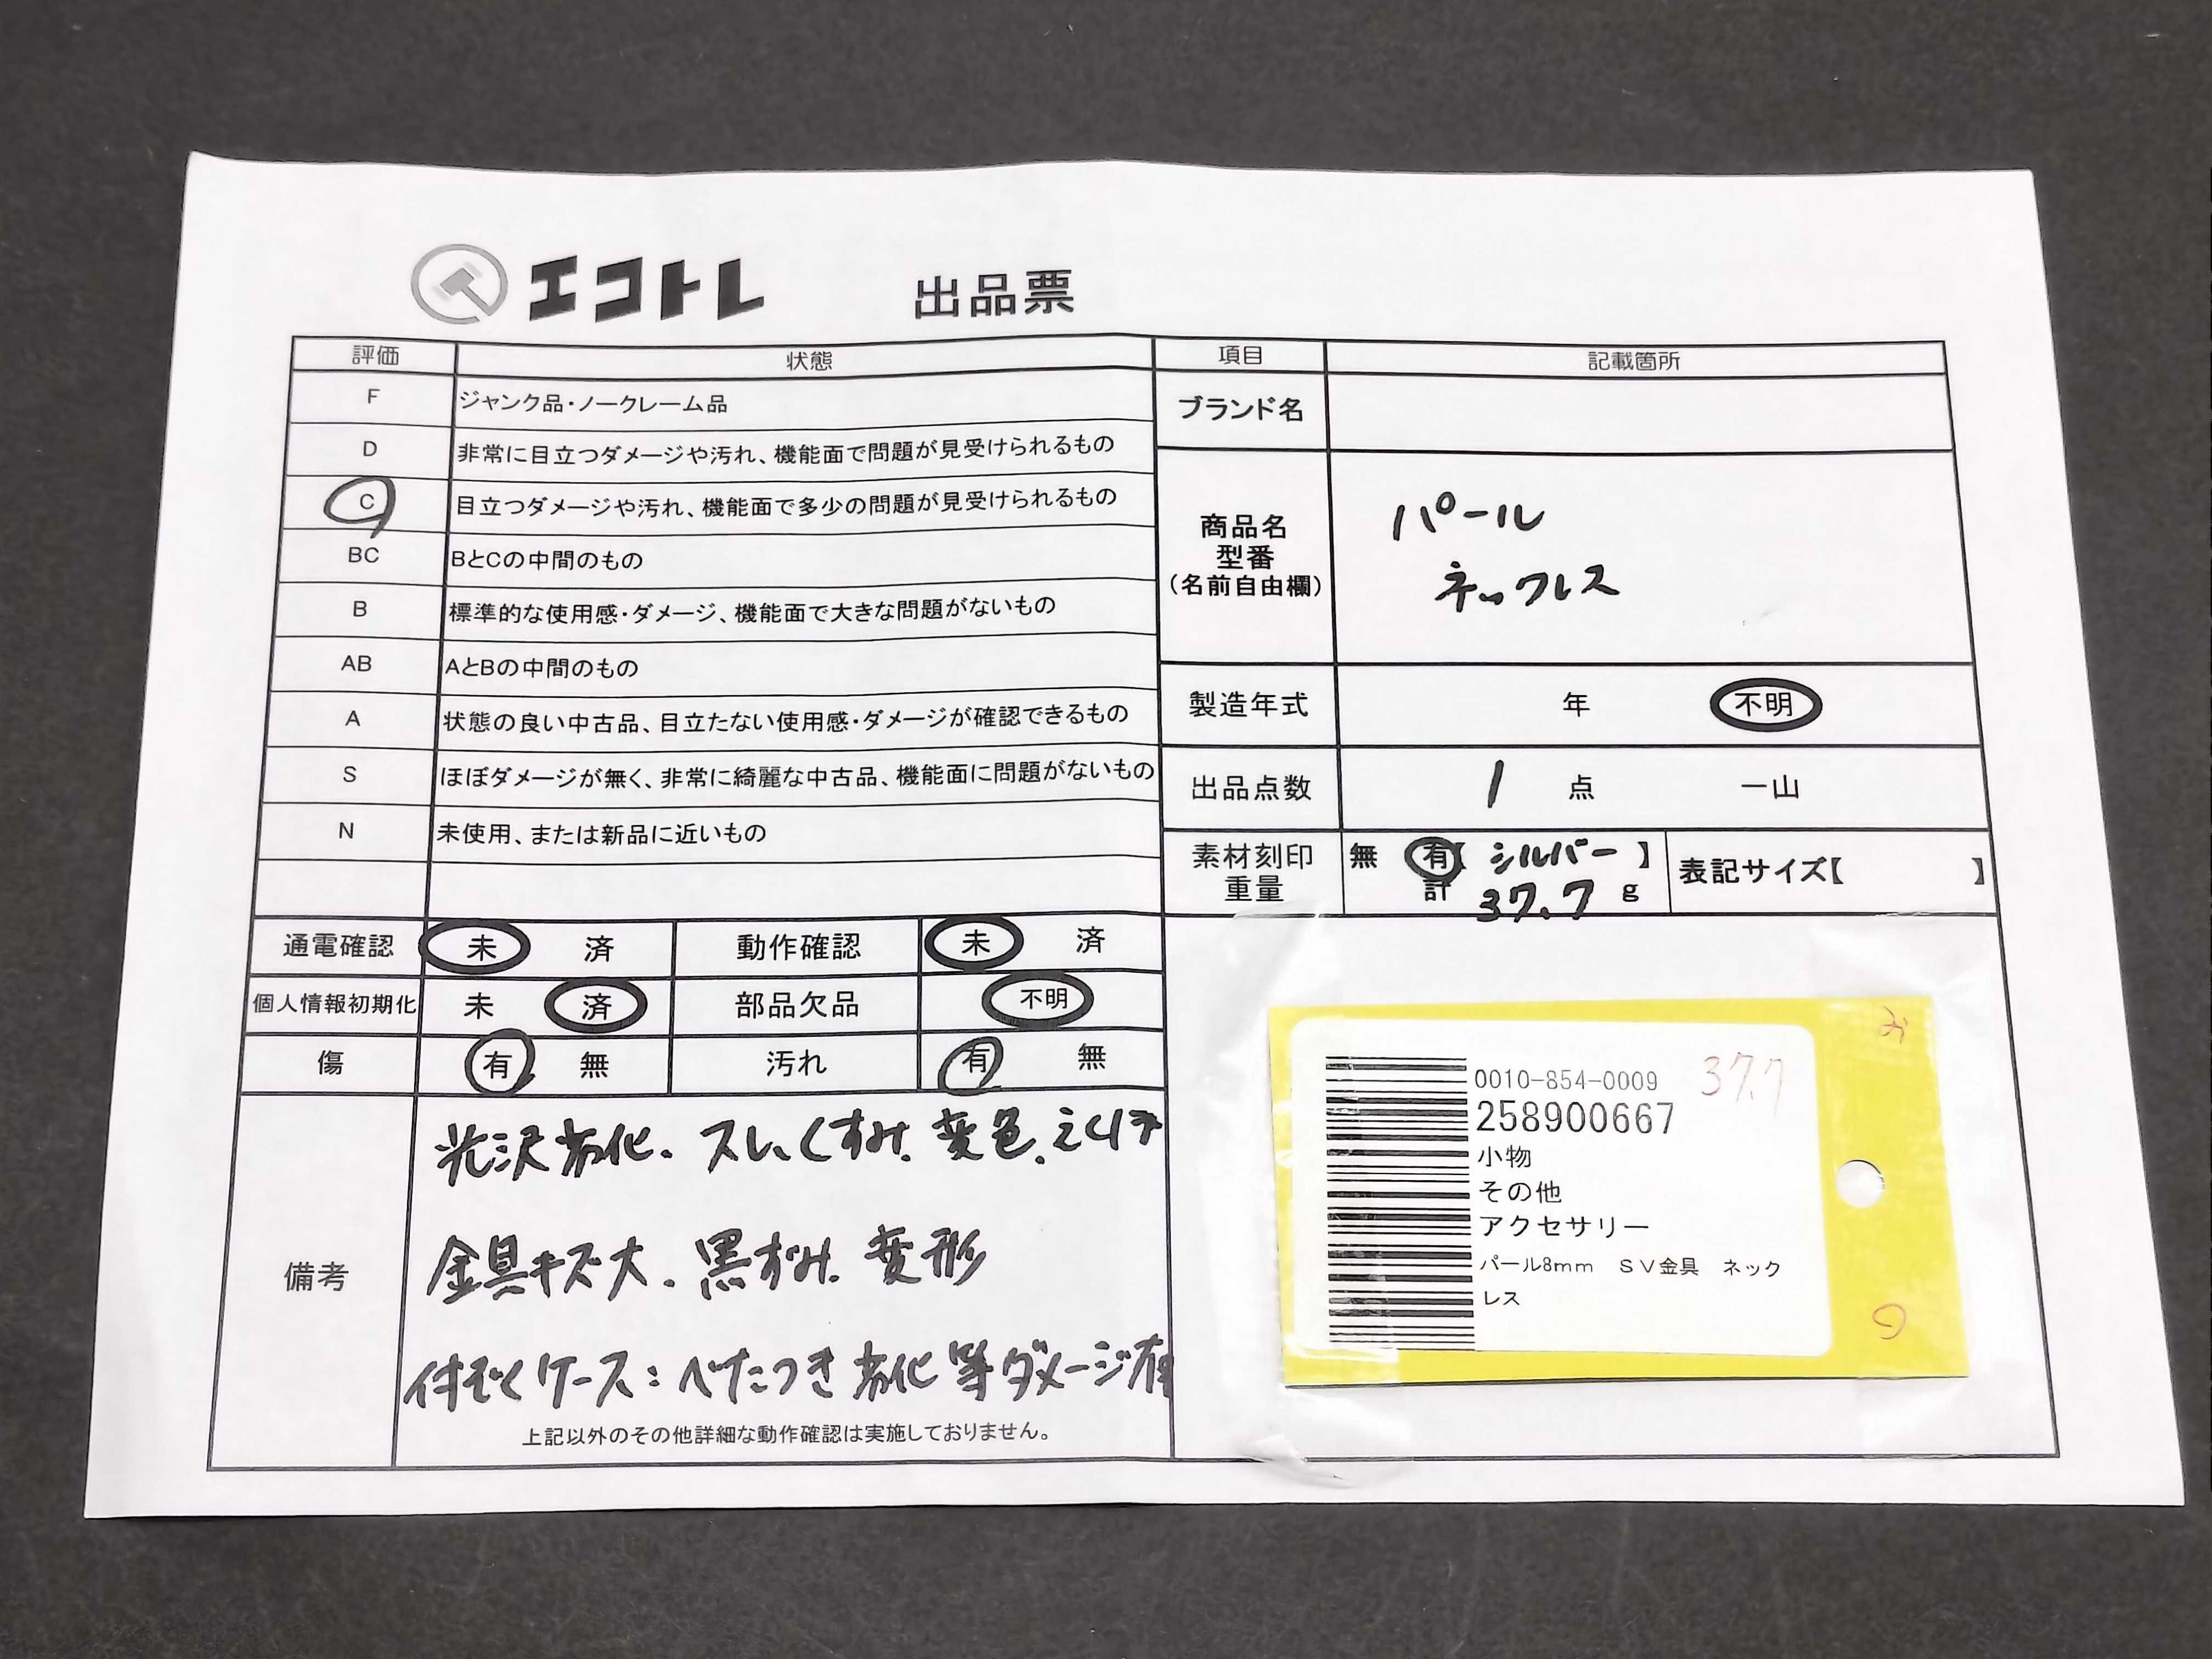 エコトレ 出品票
評価 状態
F ジャンク品・ノークレーム品
D 非常に目立つダメージや汚れ、機能面で問題が見受けられるもの
C 目立つダメージや汚れ、機能面で多少の問題が見受けられるもの
BC BとCの中間のもの
B 標準的な使用感・ダメージ、機能面で大きな問題がないもの
AB AとBの中間のもの
A 状態の良い中古品、目立たない使用感・ダメージが確認できるもの
S ほぼダメージが無く、非常に綺麗な中古品、機能面に問題がないもの
N 未使用、または新品に近いもの
通電確認 未 済 動作確認 未 済
個人情報初期化 未 済 部品欠品 不明
傷 有 無 汚れ 有 無
備考
光沢劣化、スレ、くすみ、変色、えくぼ
金具キズ大、黒ずみ、変形
付ぞくケース:べたつき劣化等ダメージ有
上記以外のその他詳細な動作確認は実施しておりません。
項目 記載箇所
ブランド名
商品名
型番
(名前自由欄)
パール
ネックレス
製造年式 年 不明
出品点数 1 点 一山
素材刻印 無 有【シルバー】
重量 計 37.7 g
表記サイズ【 】
0010-854-0009 37.7
258900667
小物
その他
アクセサリー
パール8mm SV金具 ネック
レス